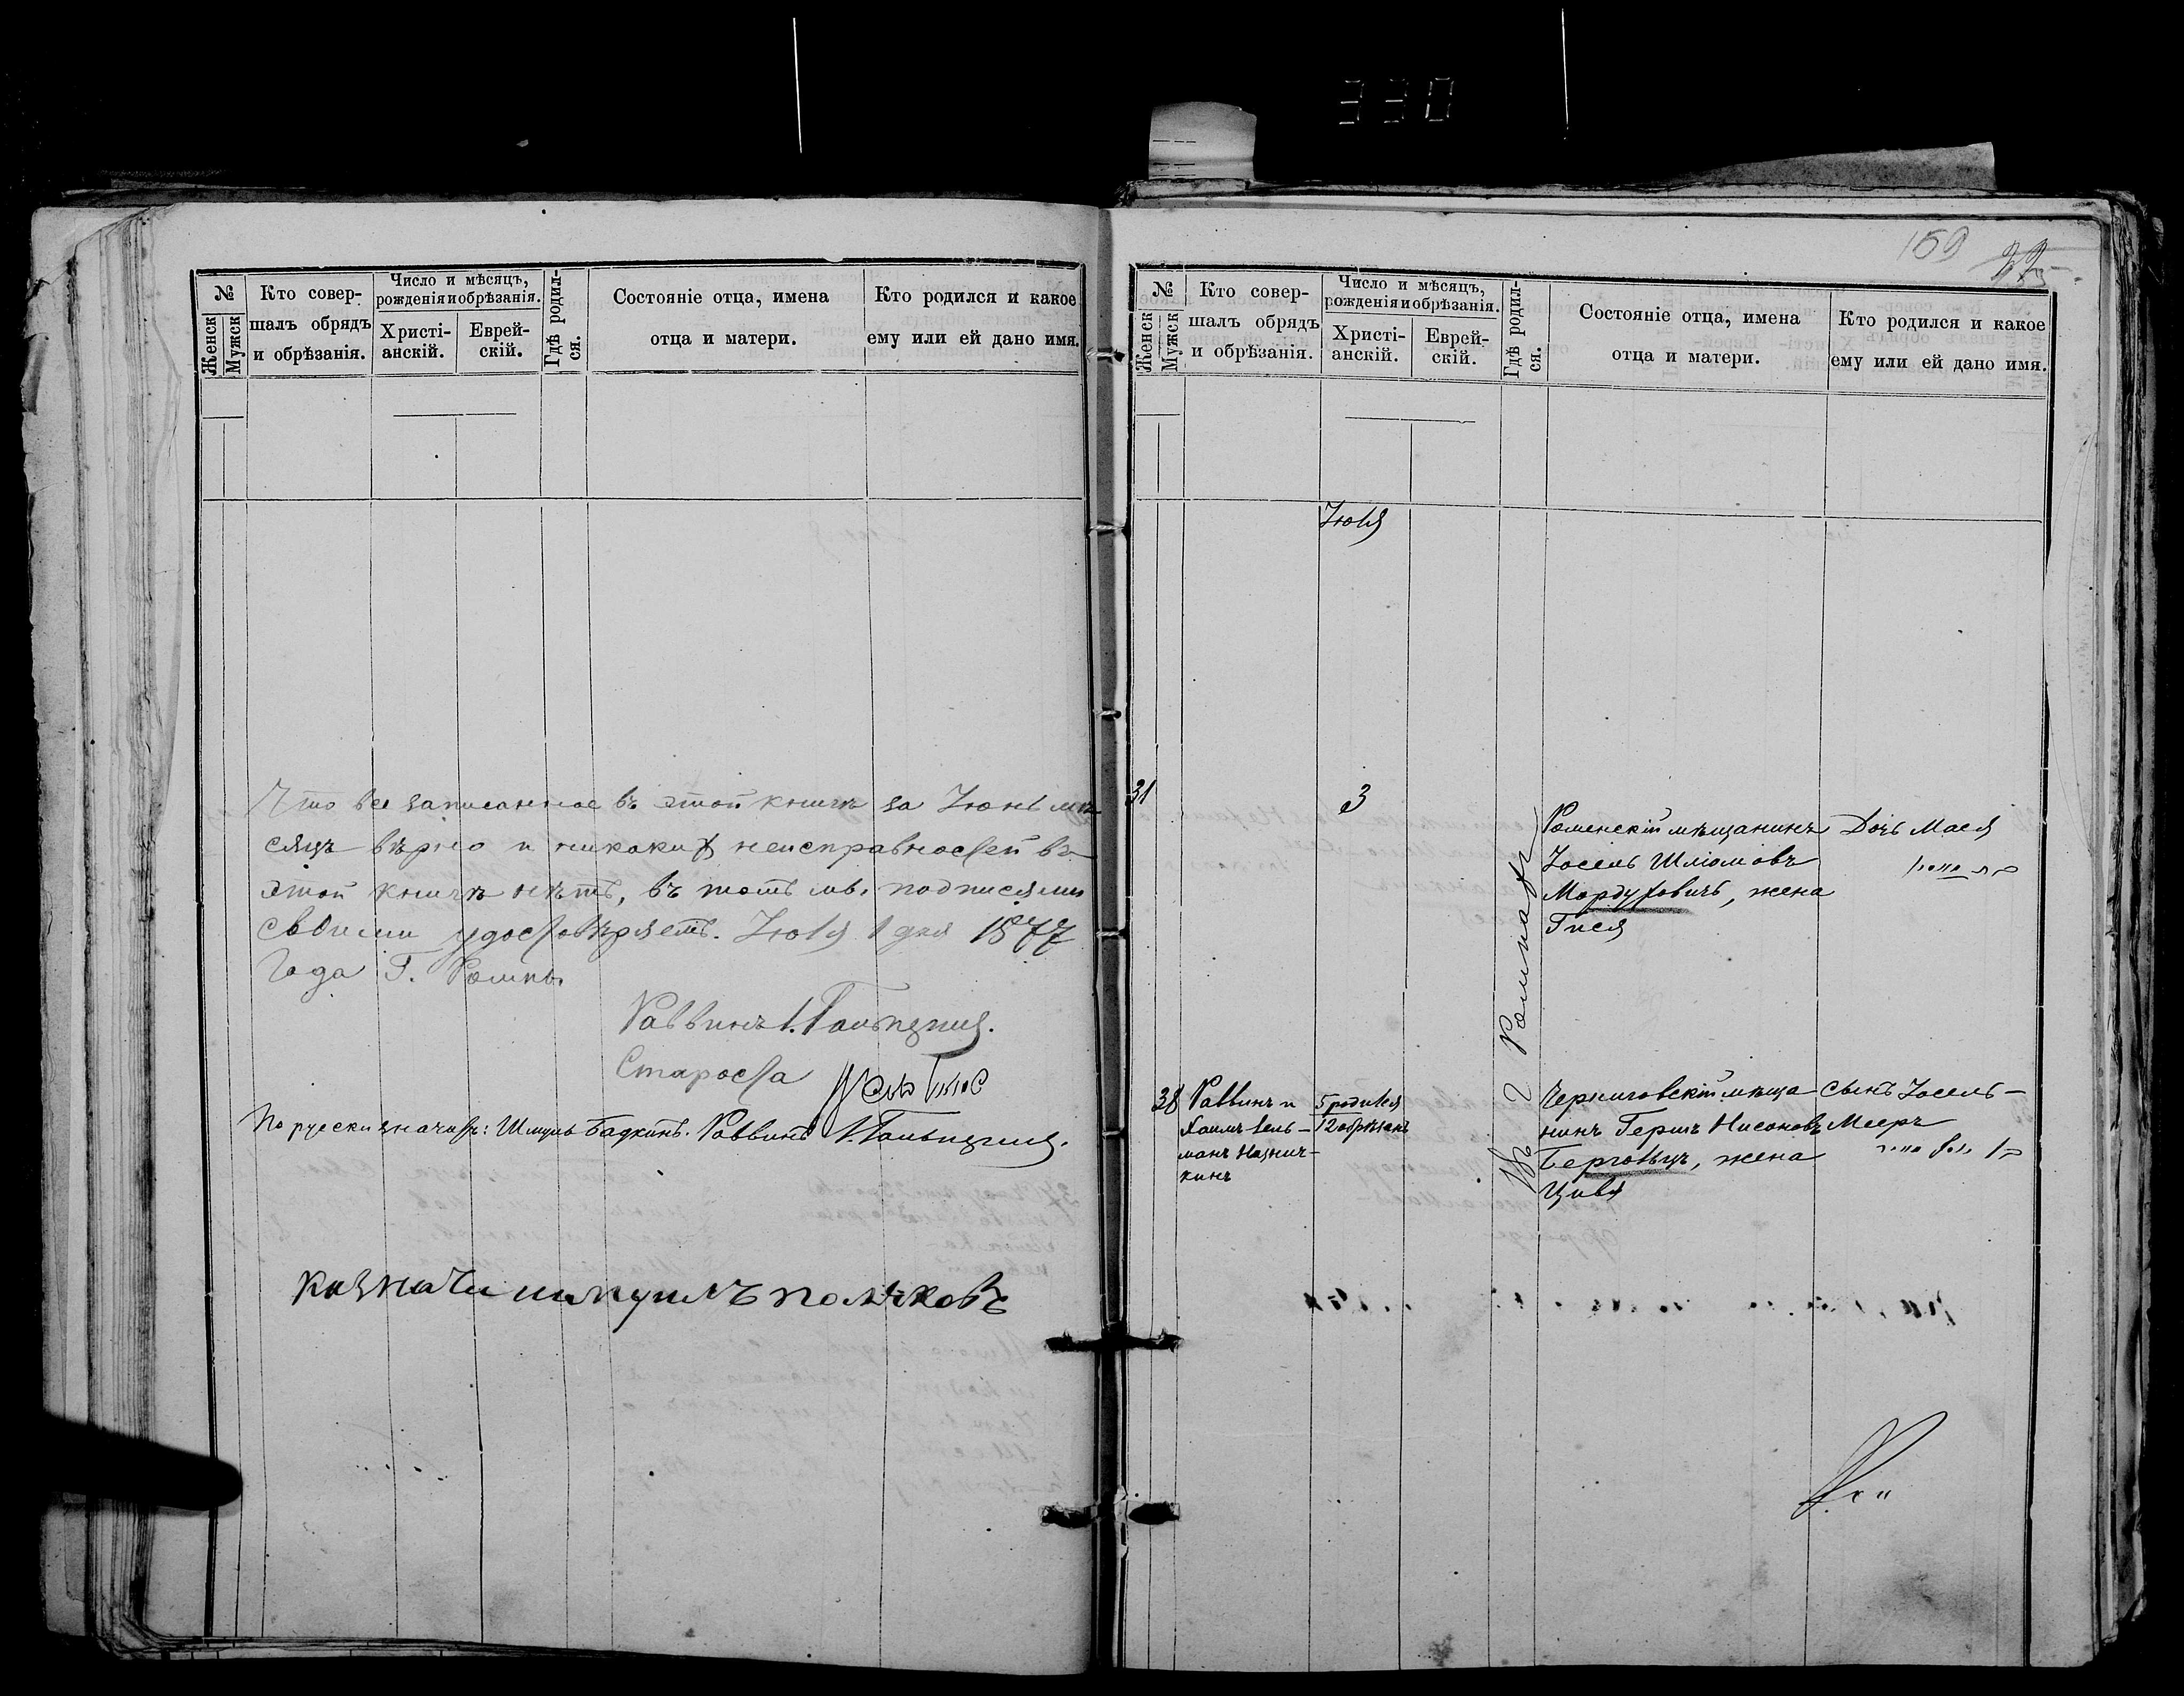 330
№
Женск
Мужск
Кто совер-
шалъ обрядъ
и обрѣзанія.
Число и мѣсяцъ,
рожденія и обрѣзанія.
Христі-
анскій.
Еврей-
скій.
Гдѣ родил-
ся.
Состояніе отца, имена
отца и матери.
Кто родился и какое
ему или ей дано имя.
Что все записанное въ этой книгѣ за Іюнь мѣ
сяцъ вѣрно и никакихъ неисправностей въ
этой книгѣ нѣтъ, въ томъ мы подписями
своими удостовѣряемъ. Іюля 1 дня 1877
Года Г. Ромны.
Раввинъ І.
Староста
По русски значитъ: Шмуль Бадкинъ. Раввинъ І.
Казначи поляковъ
159
№
Женск
Мужск
Кто совер-
шалъ обрядъ
и обрѣзанія.
Число и мѣсяцъ,
рожденія и обрѣзанія.
Христі-
анскій.
Еврей-
скій.
Гдѣ родил-
ся.
Состояніе отца, имена
отца и матери.
Кто родился и какое
ему или ей дано имя.
Іюля
31
3
Въ г Ромнахъ
Роменскій мѣщанинъ
Іосель Шліомовъ
Мордуховичъ, жена
Гися
Дочь Мася
38
Раввинъ и
Хаимъ Зель-
манъ
5 родился
12 обрѣзанъ
Черниговскій мѣща
нинъ Гершъ Нисоновъ
жена
Цивя
Сынъ Іосель-
Мееръ